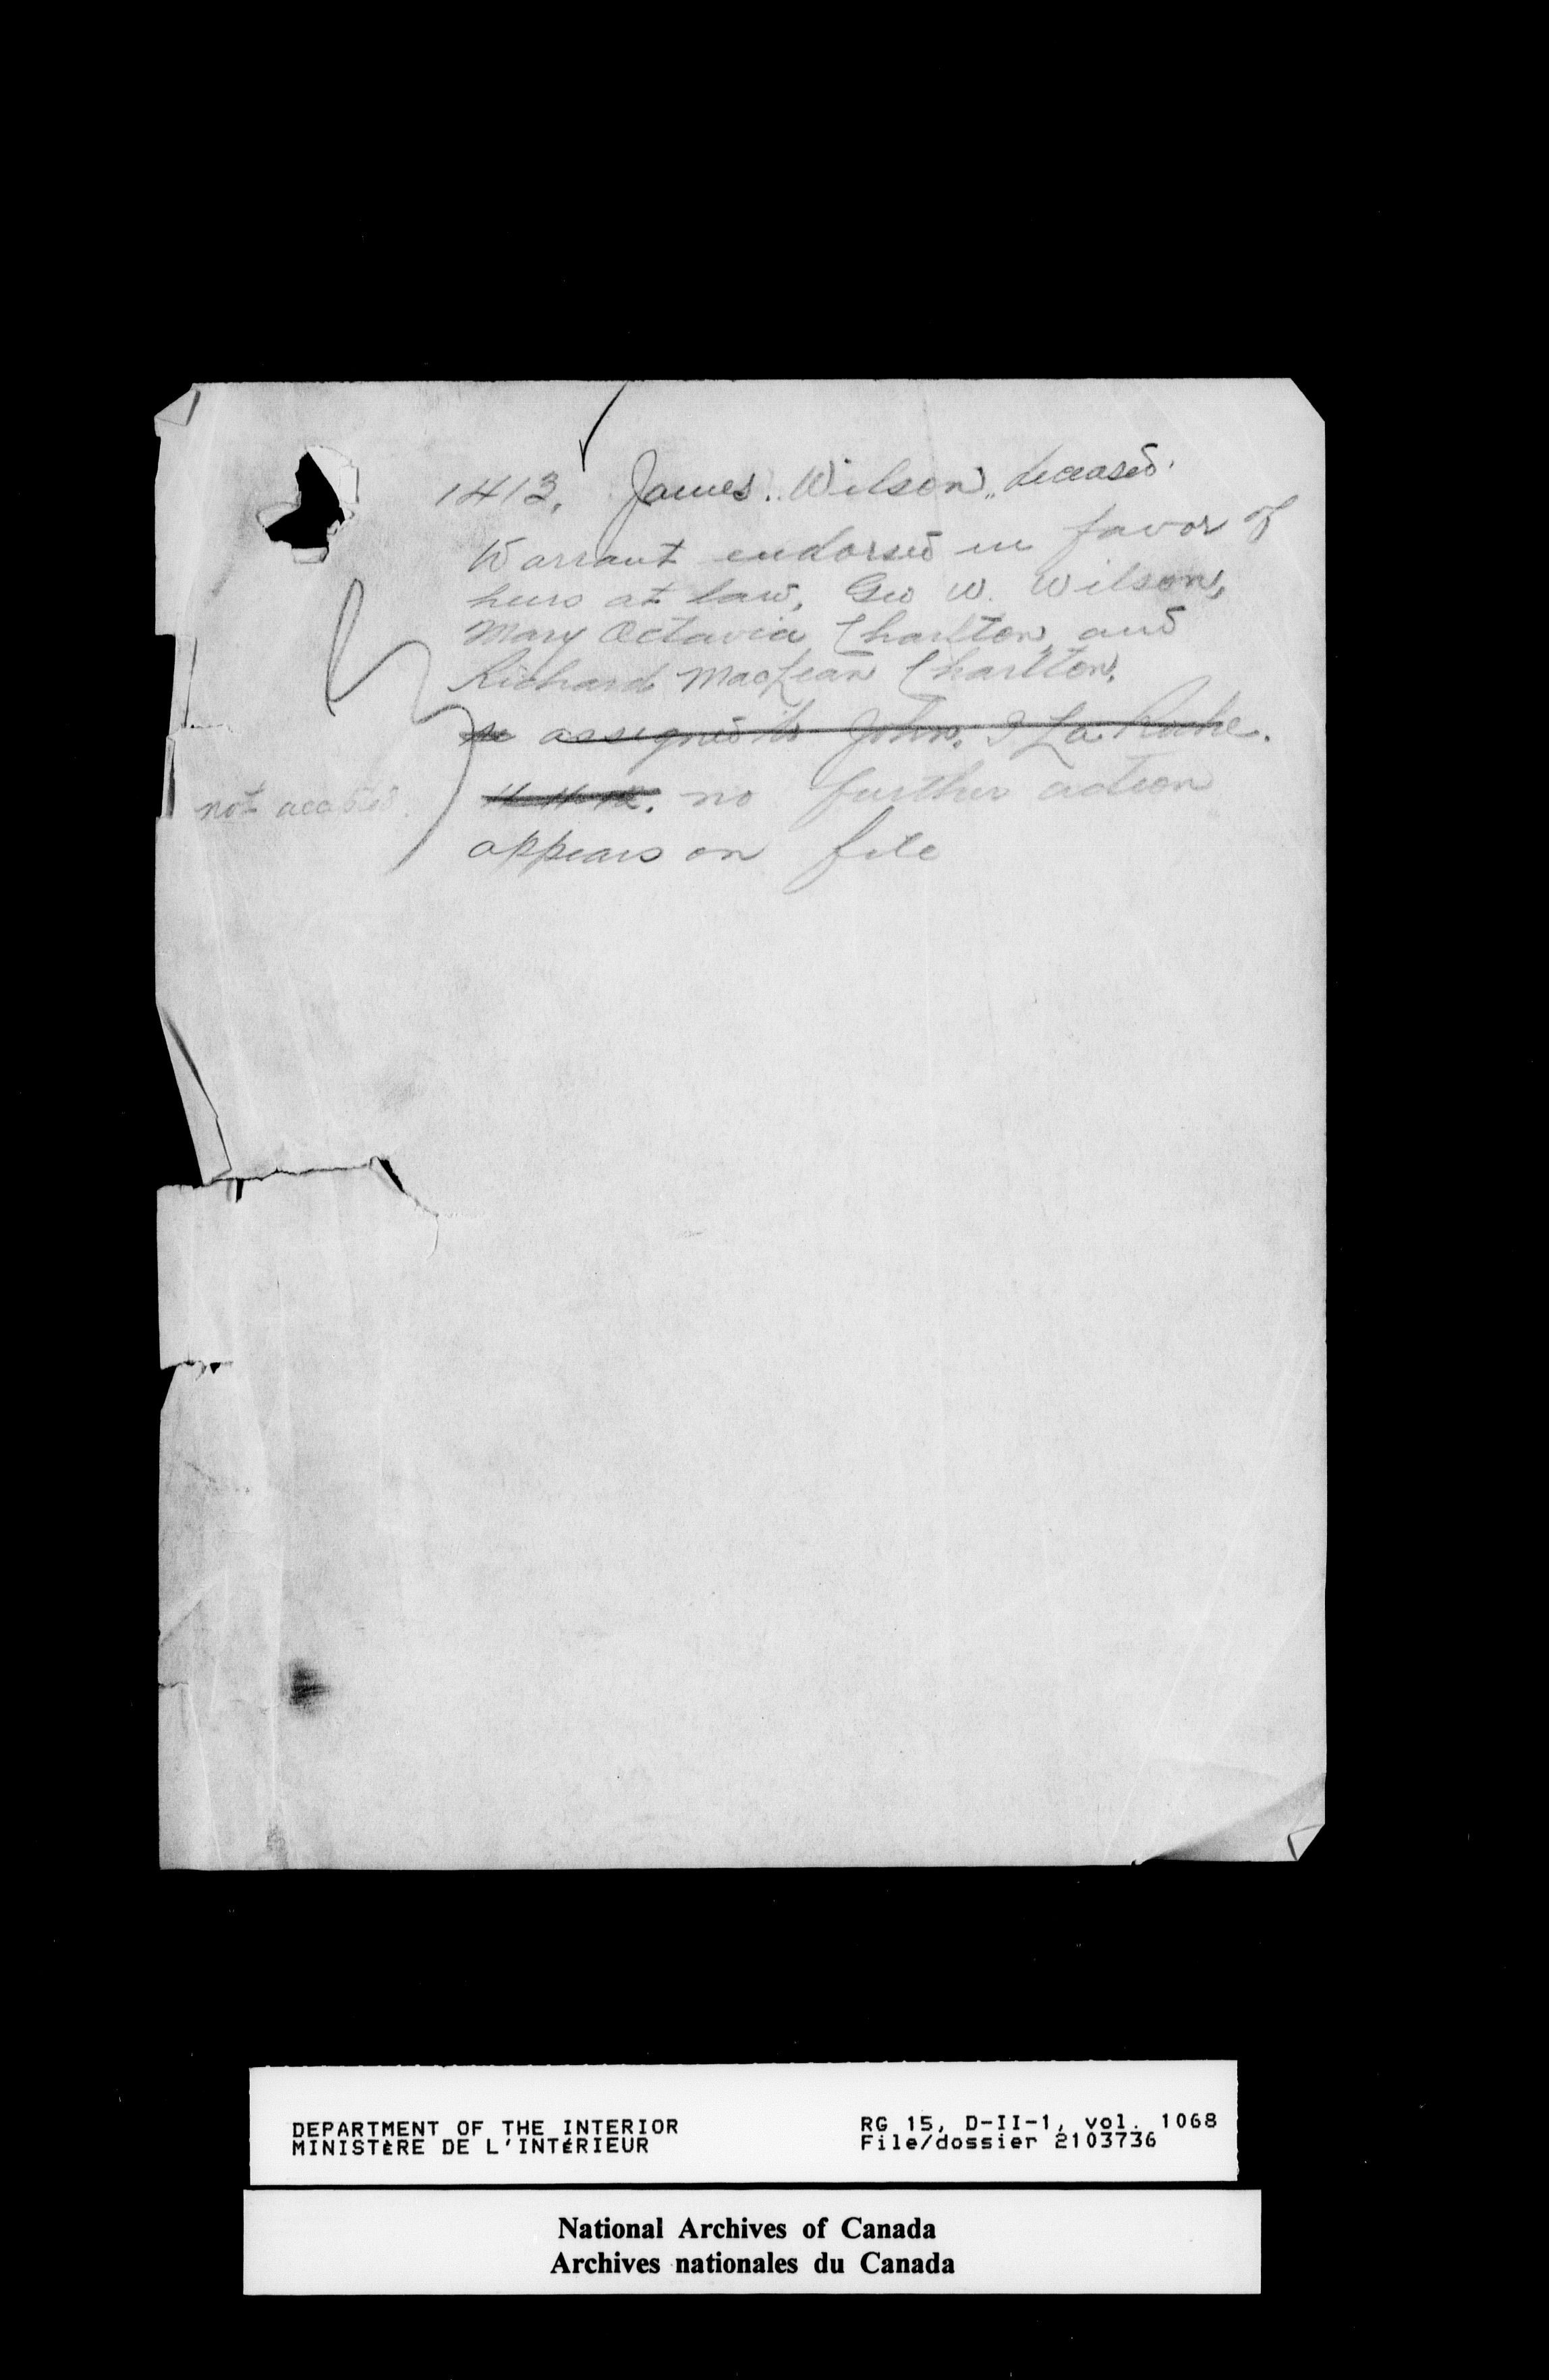 1413, James. Wilson, deceased.
Warrant endorsed in favor of
heirs at law, Geo W. Wilson,
Mary Octavia Charlton, and
Richard MacLean Charlton.
assigned to John. I La Roche.
not accepted. no further action
appears on file
DEPARTMENT OF THE INTERIOR RG 15, D-II-1, vol. 1068
MINISTÈRE DE L'INTÉRIEUR File/dossier 2103736
National Archives of Canada
Archives nationales du Canada